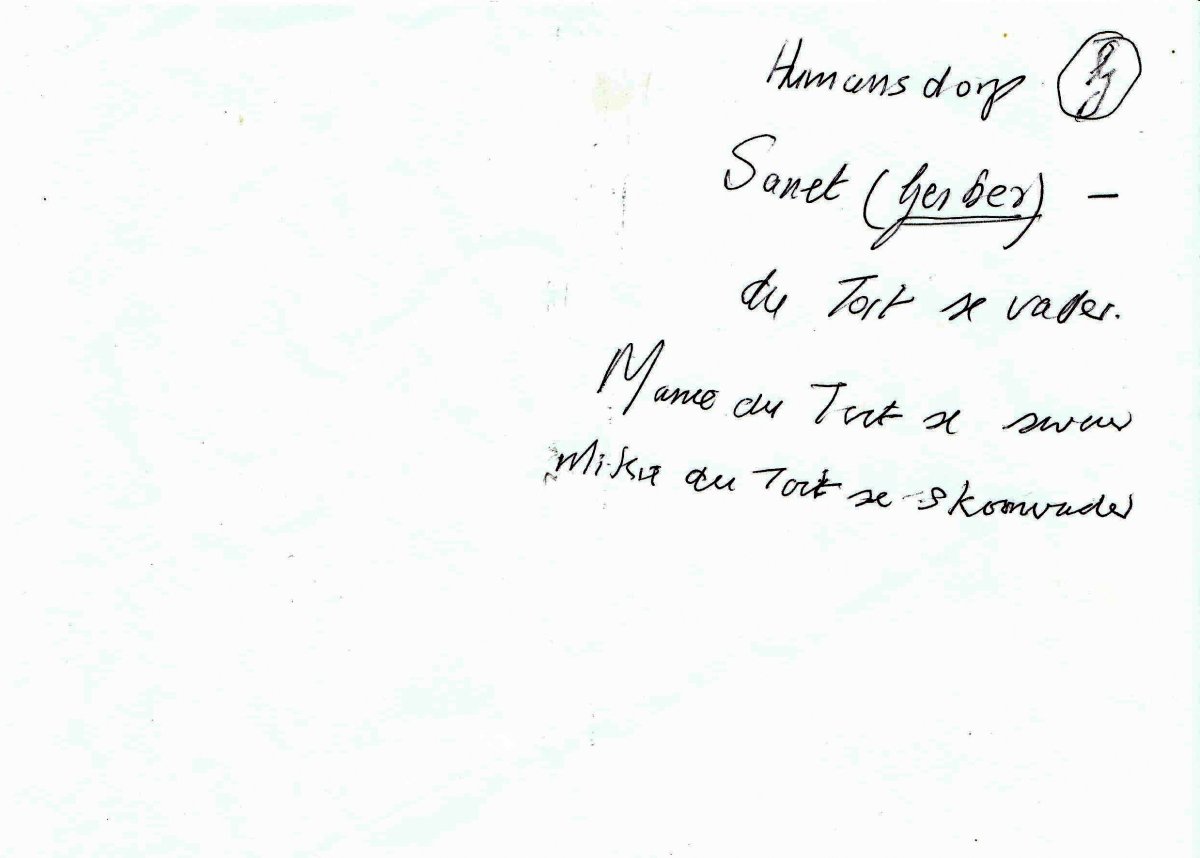 Humansdorp
Sanet (Gerber) –
du Toit se vader.
du Toit se swaer
du Toit se skoonvader